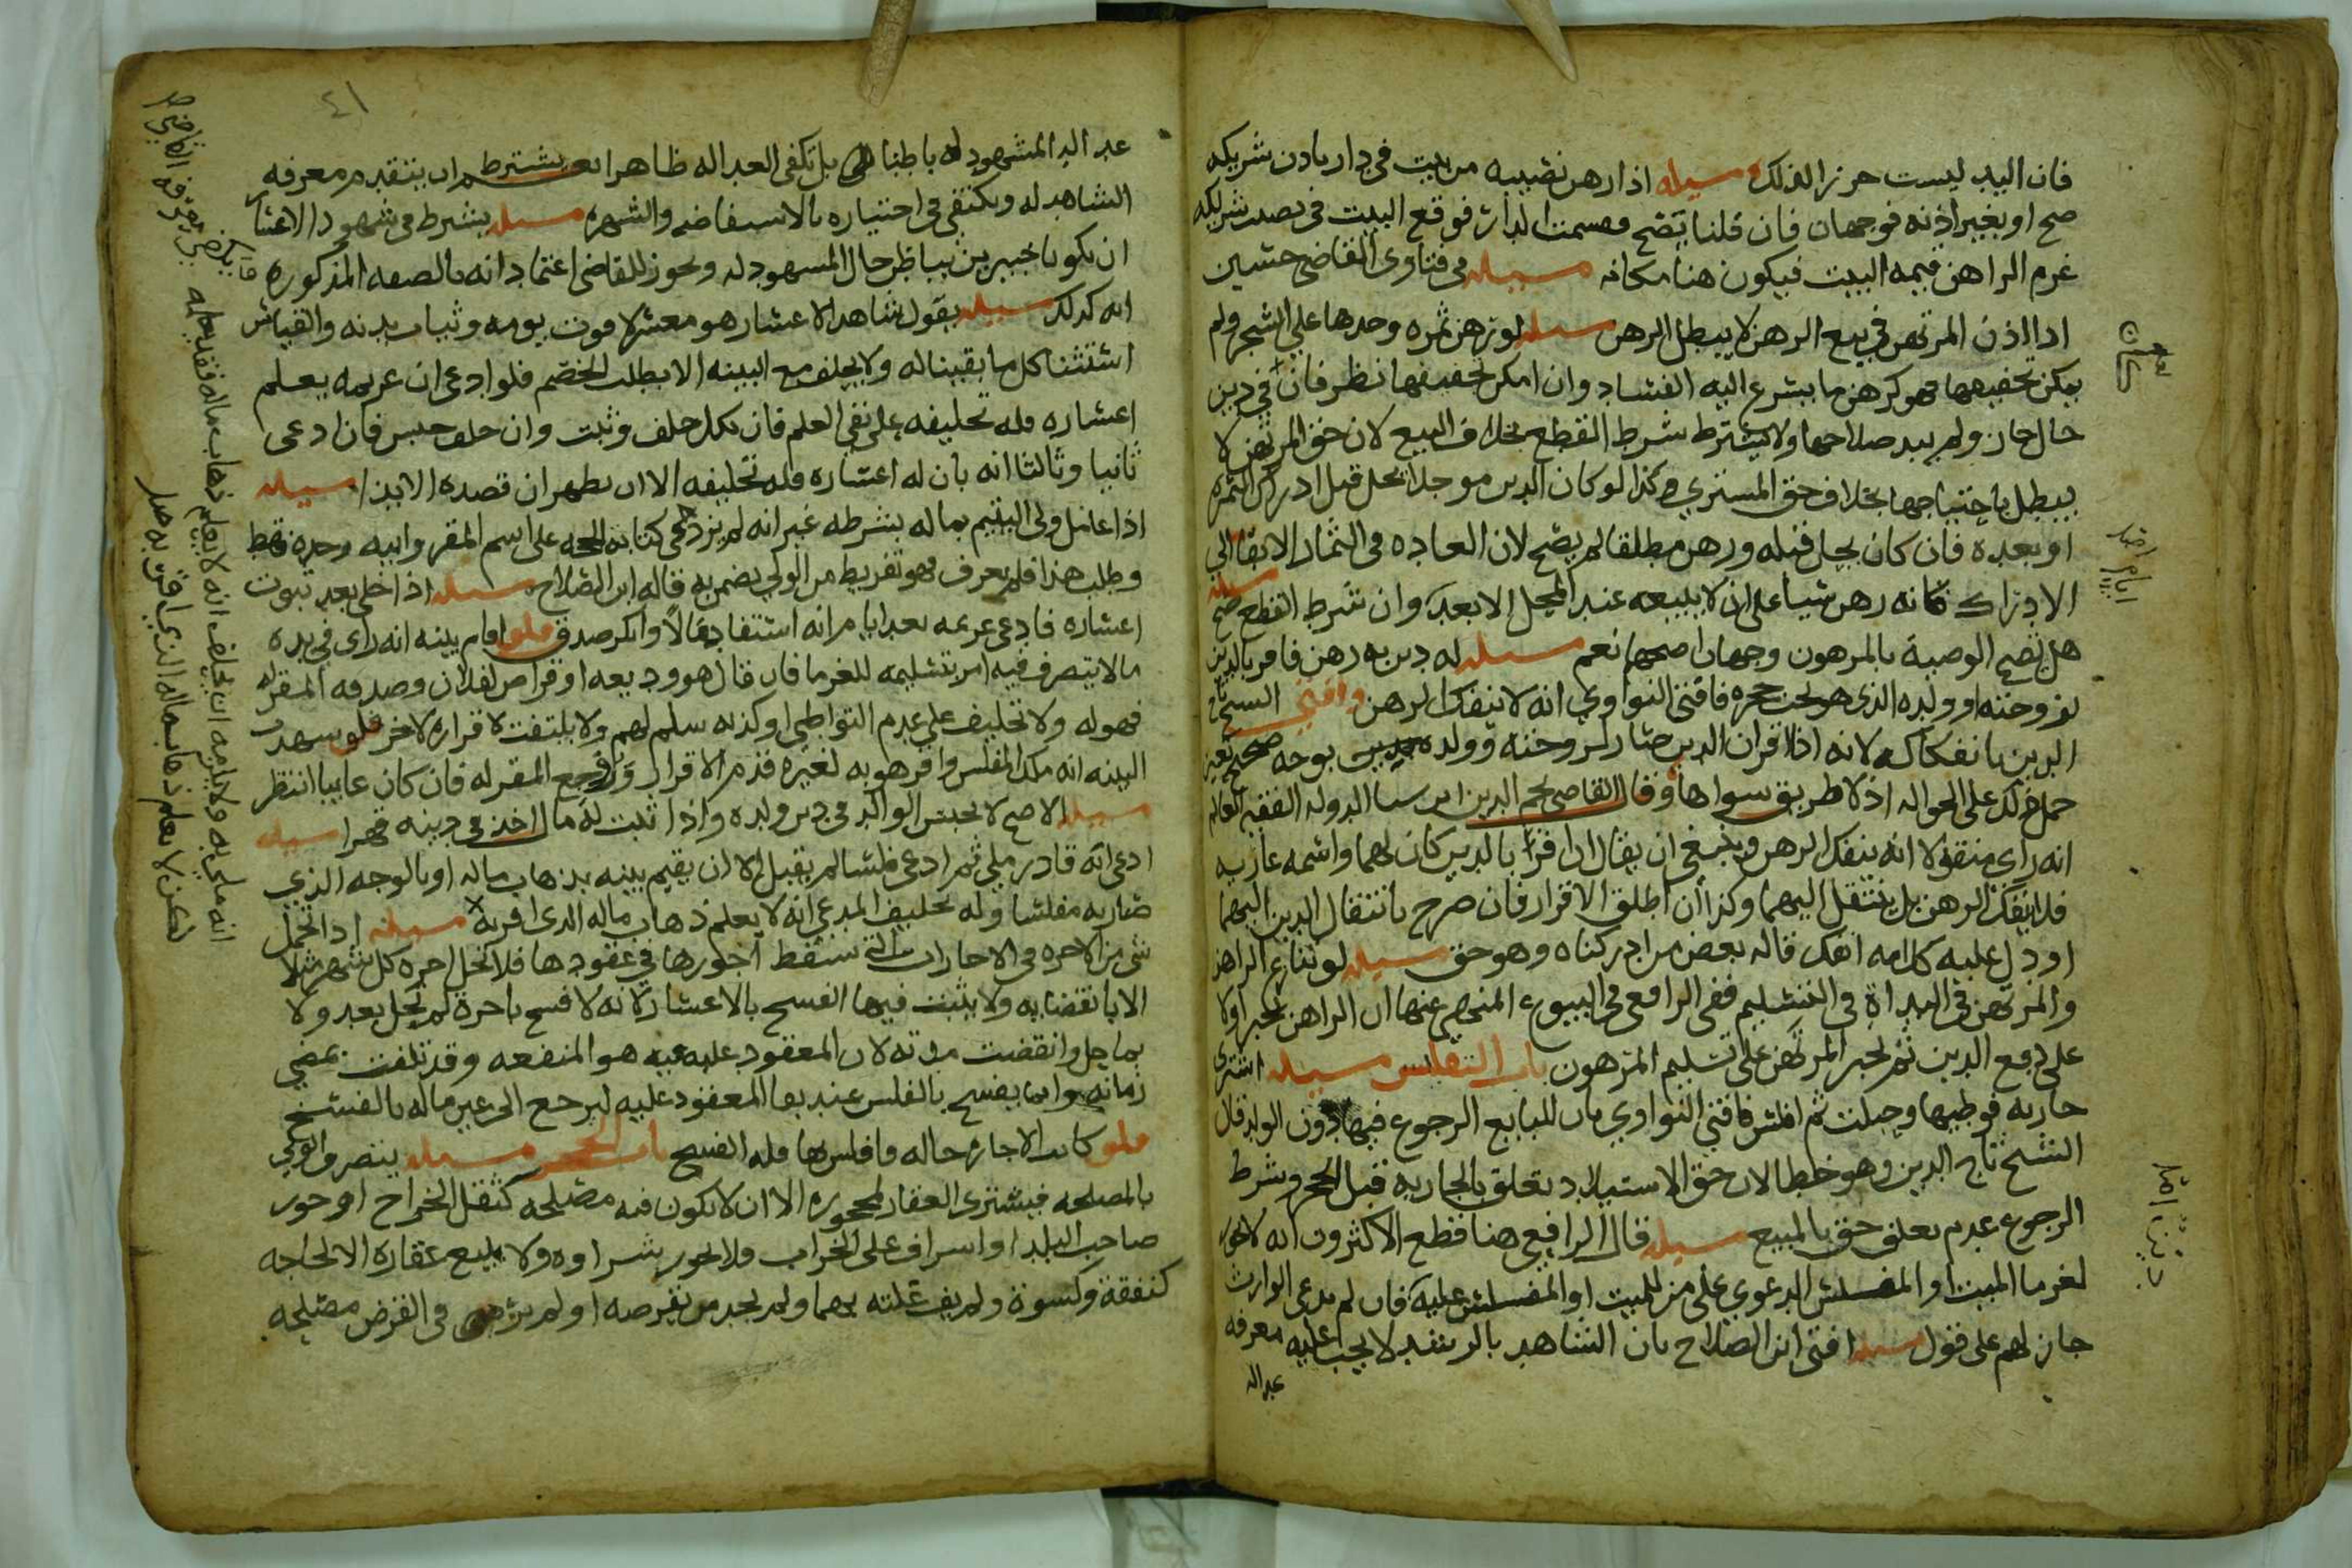 فان اليد ليست حرزا لذلك مسيله اذا رهن نصيبه من بيت في دار باذن شريكه
صح او بغير اذنه فوجهان فان قلنا يصح وقسمت الدار فوقع البيت في نصيب شريكه
غرم الراهن قيمه البيت فيكون رهنا مكانه مسيله في فتاوى القاضي حسين
اذا اذن المرتهن في بيع الرهن لا يبطل الرهن مسيله لو رهن ثمره وحدها على الشجر ولم
يمكن تجفيفها فهو كرهن ما يسرع اليه الفساد وان امكن تجفيفها نظر فان في دين
حال جاز ولم يبد صلاحها ولا يشترط شرط القطع بخلاف البيع لان حق المرتهن لا
يبطل باجتياحها بخلاف حق المشتري وكذا لو كان الدين موجلا يحل قبل ادراك الثمره
او بعده فان كان يحل قبله ورهن مطلقا لم يصح لان العاده في الثمار الابقا الي
الادراك فكانه رهن شيا على ان لا يبيعه عند المحل الا بعد وان شرط القطع صح مسيله
هل تصح الوصية بالمرهون وجهان اصحهما نعم مسيله له دين به رهن فاقر بالدين
لزوجته او ولده الذي هو تحت حجره فافتى النواوي انه لا ينفك الرهن وافتى الشيخ تاج
الدين بانفكاكه لانه اذا اقر ان الدين صار لزوجته وولده بوجه صحيح تعين
حمل ذلك على الحواله اذ لا طريق سواها وقال القاضي نجم الدين ابن سنا الدوله الفقيه العالم
انه راى منقولا انه ينفك الرهن وينبغي ان يقال ان اقر بالدين كان لهما واسمه عاريه
فلا ينفك الرهن بل ينتقل اليهما وكذا ان اطلق الاقرار فان صرح بانتقال الدين اليهما
او دل عليه كلامه انفك قاله بعض من ادركناه وهو حق مسيله لو تنازع الراهن
والمرتهن في البداة في التسليم ففي الرافعي في البيوع المنهي عنها ان الراهن يجبر اولا
على دفع الدين ثم يجبر المرتهن على تسليم المرهون باب التفليس مسيله اشترى
جاريه فوطيها وحبلت ثم افلس فافتى النواوي بان للبايع الرجوع فيها دون الولد قال
الشيخ تاج الدين وهو خطا لان حق الاستيلاد تعلق بالجاريه قبل الحجر وشرط
الرجوع عدم تعلق حق بالمبيع مسيله قال الرافعي هنا قطع الاكثرون انه لا يجوز
لغرما الميت او المفلس الدعوي على من للميت او المفلس عليه فان لم يدعي الوارث
جاز لهم على قول مسيله افتى ابن الصلاح بان الشاهد بالرشد لا يجب عليه معرفه
عداله
عداله المشهود له باطنا بل تكفى العداله ظاهرا نعم يشترط ان يتقدم معرفه
الشاهد له ويكتفي في اختياره بالاستفاضه والشهره مسيله يشترط في شهود الاعسار
ان يكونا خبيرين بباطن حال المشهود له ويجوز للقاضي اعتماد انه بالصفه المذكوره
انه كذلك مسيله يقول شاهد الاعسار هو معسر الا قوت يومه وثياب بدنه والقياس
استثنا كل ما يقيناله ولا يحلف مع البينه الا بطلب الخصم فلو ادعى ان غريمه يعلم
اعساره فله تحليفه على نفي العلم فان نكل حلف وثبت وان حلف حبس فان ادعى
ثانيا وثالثا انه بان له اعساره فله تحليفه الا ان يظهر ان قصده الايذا مسيله
اذا عامل ولى اليتيم بماله بشرطه غير انه لم يزد في كتابة الحجه على اسم المقر وابيه وحده فقط
وطلب هذا فلم يعرف فهو تفريط من الولي يضمن به قاله ابن الصلاح مسيله اذا خلى بعد ثبوت
اعساره فادعى غريمه بعد ايام انه استفاد مالا وانكر صدق فلو اقام بينه انه راى في يده
مالا يتصرف فيه امر بتسليمه للغرما فان قال هو وديعه او قراض لفلان وصدقه المقر له
فهو له ولا تحليف على عدم التواطي او كذبه سلم لهم ولا يلتفت لاقراره لاخر فلو شهدت
البينه انه ملك المفلس واقر هو به لغيره قدم الاقرار وراجع المقر له فان كان غايبا انتظر
مسيله الاصح لا يحبس الوالد في دين ولده واذا ثبت له مال اخذ في دينه قهرا مسيله
ادعى انه قادر ملي ثم ادعى فلسا لم يقبل الا ان يقيم بينه بذهاب ماله او بالوجه الذي
صار به مفلسا وله تحليف المدعي انه لا يعلم ذهاب ماله الذي اقر به مسيله اذا تحمل
شي من الاجره في الاجارات التي تسقط اجورها في عقودها فلا تحل اجره كل شهر مثلا
الا بانقضايه ولا يثبت فيها الفسخ بالاعسار لانه لا فسخ باجرة لم تحل بعد ولا
بما حل وانقضت مدته لان المعقود عليه هو المنفعه وقد تلفت بمضي
زمانه وانما يفسخ بالفلس عند بقا المعقود عليه ليرجع الى عين ماله بالفسخ
فلو كانت الاجاره حاله وافلس بها فله الفسخ باب الحجر مسيله يتصرف الولي
بالمصلحه فيشترى العقار لمحجوره الا ان لا يكون فيه مصلحه كثقل الخراج او جور
صاحب البلد او اشراف على الخراب فلا يجوز شراوه ولا يبيع عقاره الا لحاجه
كنفقة وكسوة ولم يف غلته بهما ولم يجد من يقرضه او لم ير في القرض مصلحه